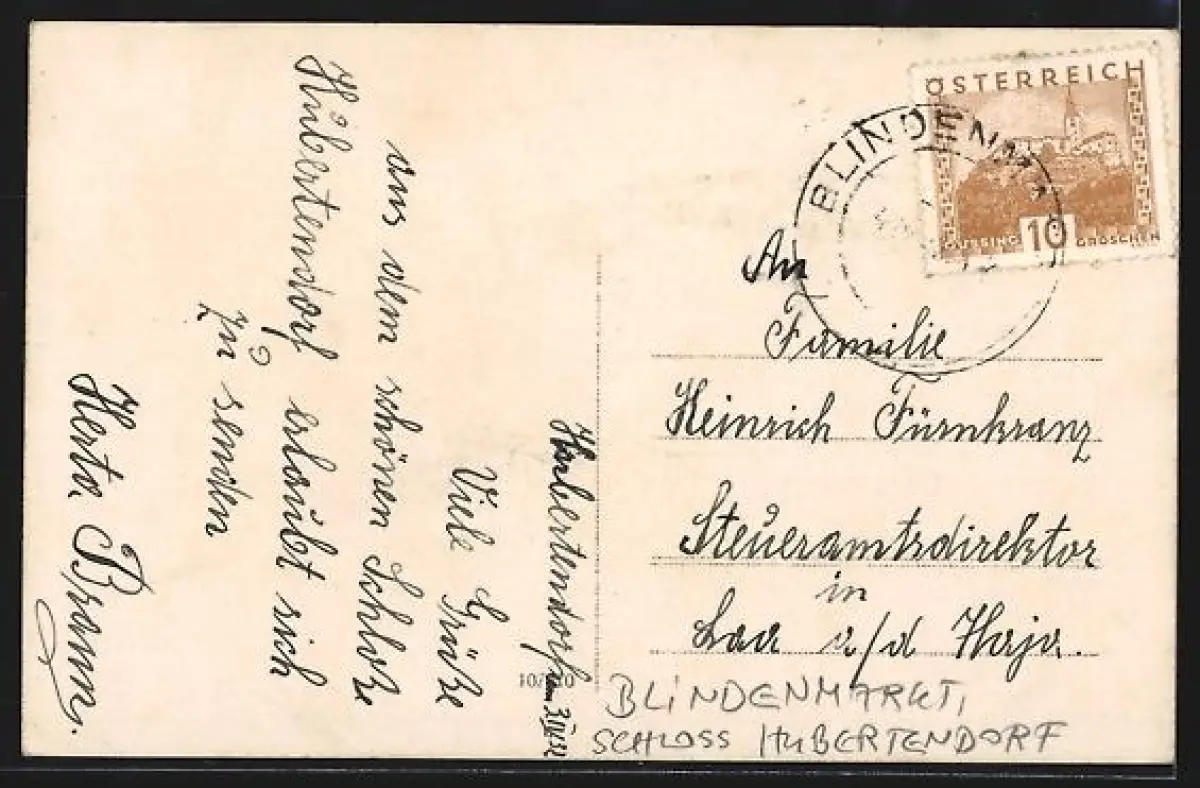 Hubertendorf am 3.
Viele Grüße
aus dem schönen Schloße
Hubertendorf erlaubt sich
zu senden
Herta
ÖSTERREICH
GÜSSING 10 GROSCHEN
BLINDENM
An
Familie
Heinrich Fürnkranz
Steueramtsdirektor
in
Laa a/d Thaja.
BLINDENMARKT,
SCHLOSS HUBERTENDORF